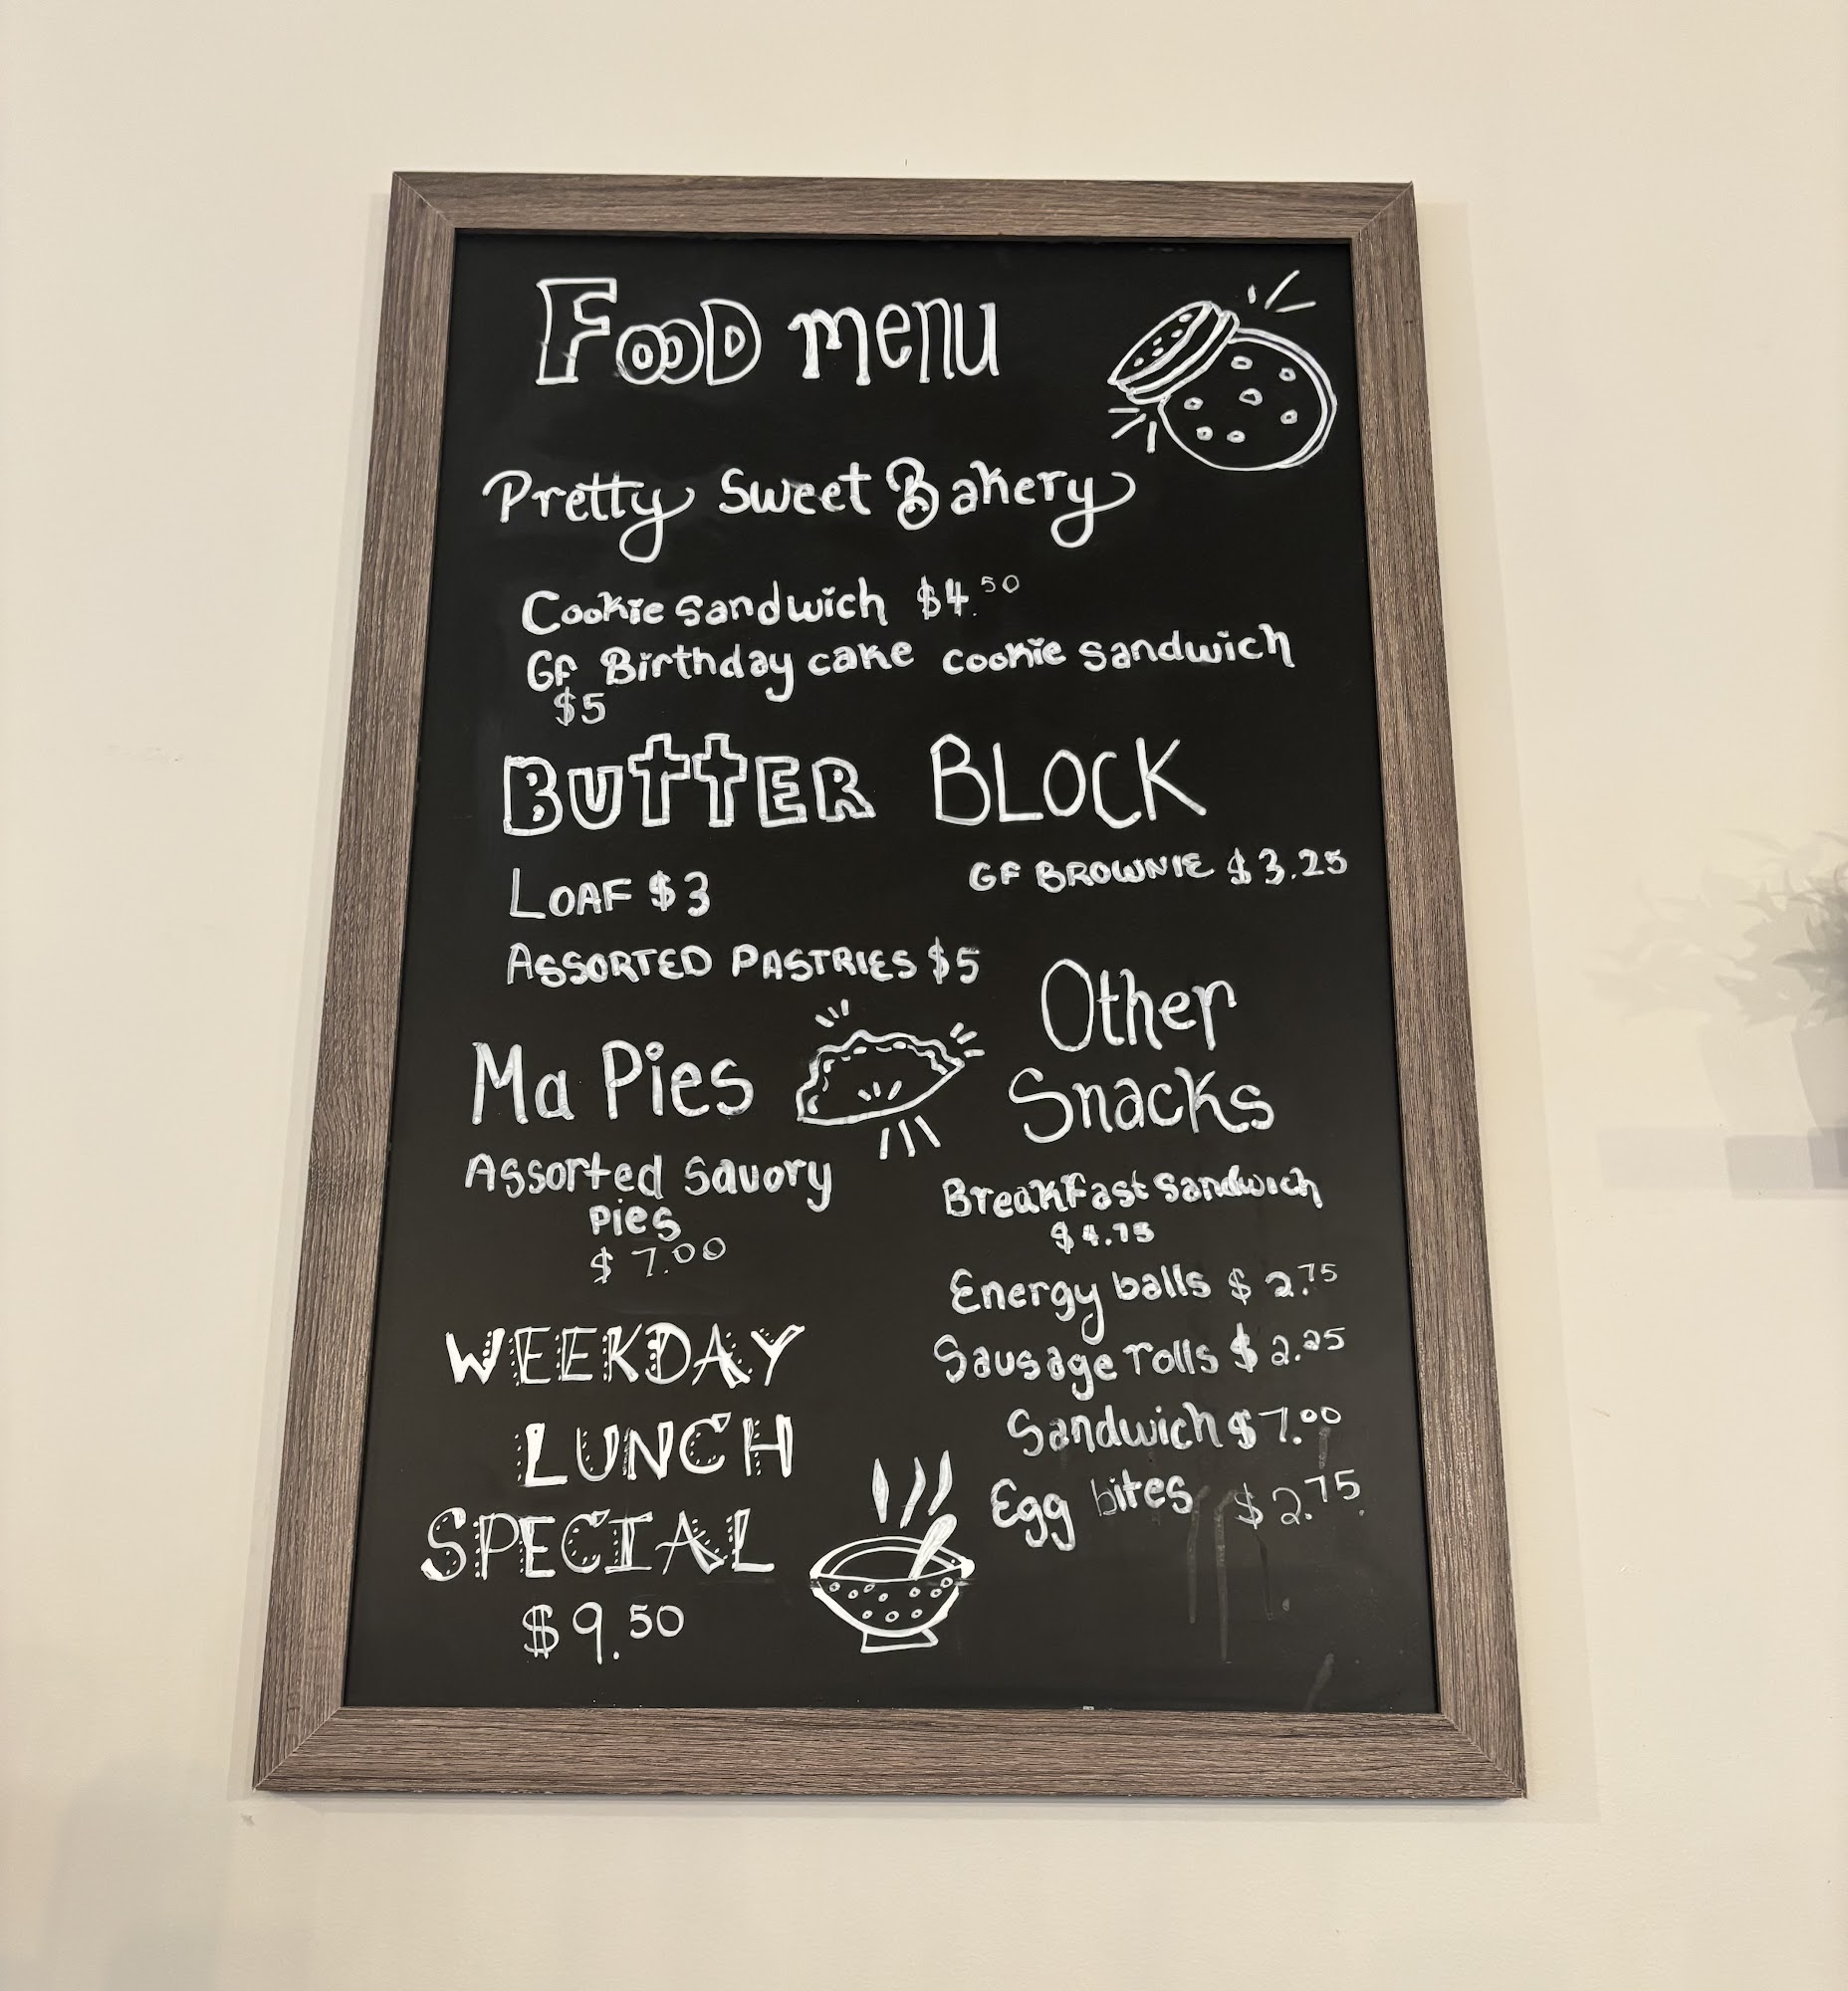 FOOD menu
Pretty Sweet Bakery
Cookie sandwich $4.50
GF Birthday cake cookie sandwich
$5
BUTTER BLOCK
LOAF $3
GF BROWNIE $3.25
ASSORTED PASTRIES $5
Ma Pies
Assorted Savory
pies
$7.00
Other
Snacks
Breakfast sandwich
$4.75
Energy balls $2.75
Sausage rolls $2.25
Sandwich $7.00
Egg bites $2.75
WEEKDAY
LUNCH
SPECIAL
$9.50